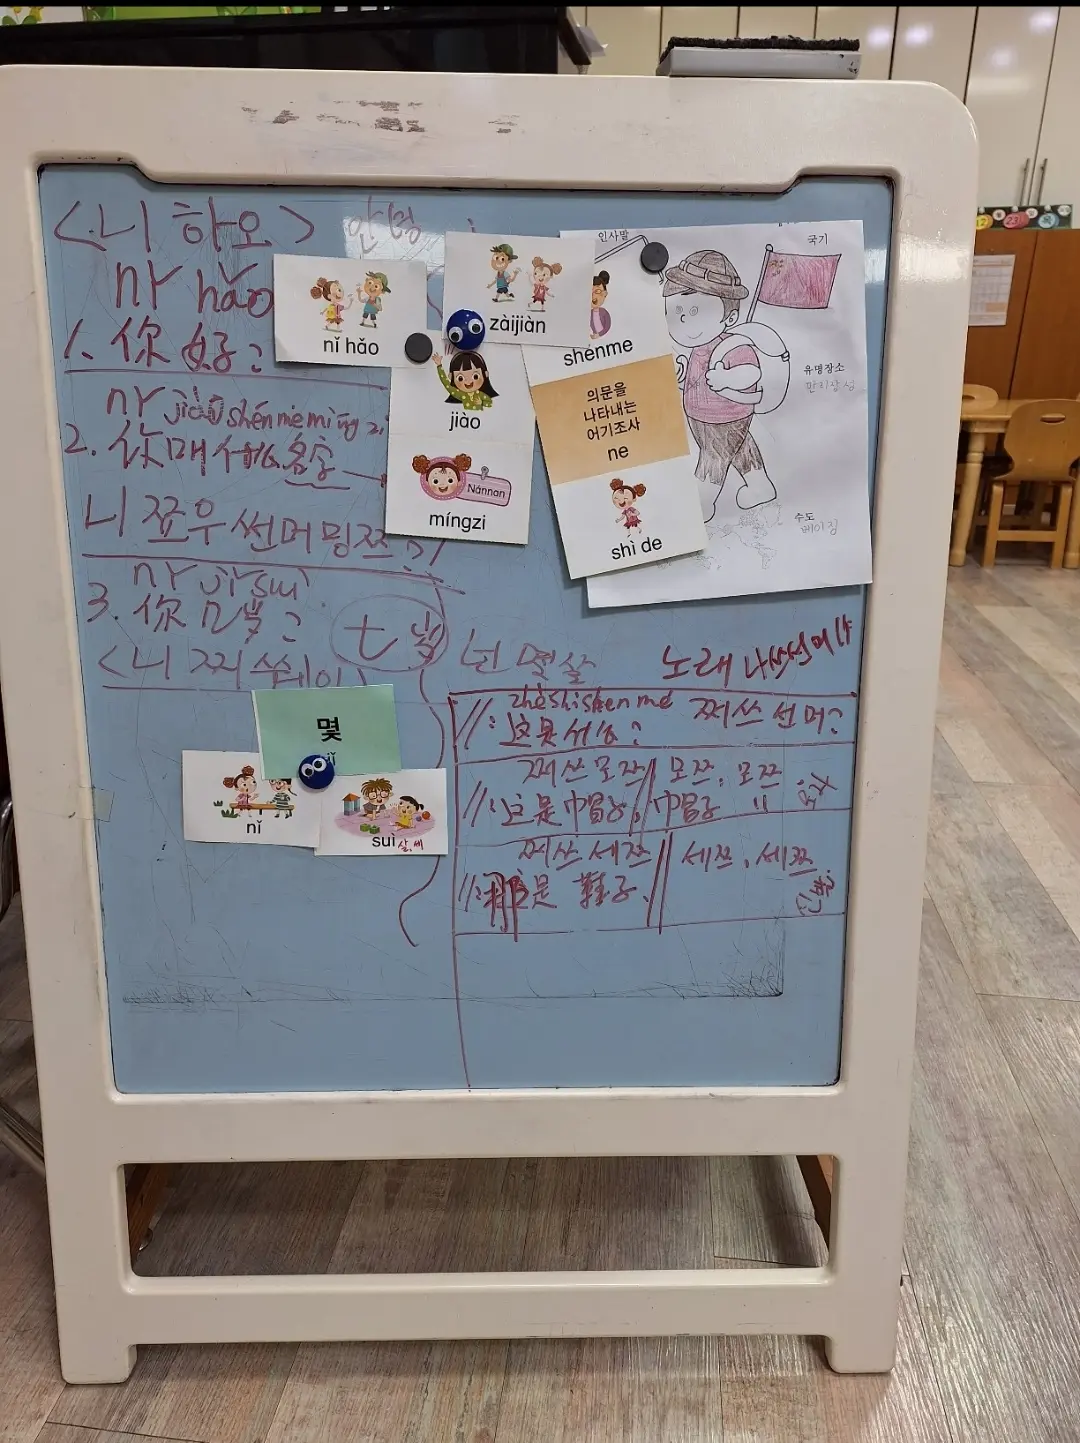 <니 하오> 안녕
nǐ hǎo
1. 你好?
nǐ jiào shén me míng zi
2. 你叫什么名字
니 쪼우 썬머 밍쯔?
nǐ jǐ suì
3. 你几岁?
<니 찌 쑤웨이>
七岁
넌 몇 살
nǐ hǎo
zàijiàn
jiào
míngzi
Nánnan
shénme
의문을
나타내는
어기조사
ne
shì de
인사말
국기
유명장소
만리장성
수도
베이징
몇
nǐ
suì 살, 세
노래
zhè shì shén me 쩌쓰 선머?
这是什么?
쩌쓰 모쯔 모쯔, 모쯔
这是帽子, 帽子 "
모자
쩌쓰 세쯔 세쯔, 세쯔
是 鞋子